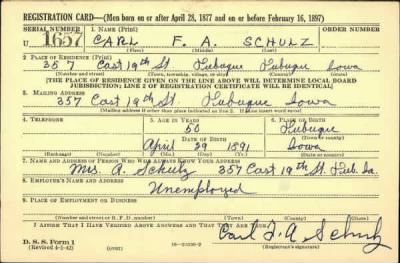 REGISTRATION CARD—(Men born on or after April 28, 1877 and on or before February 16, 1897)
SERIAL NUMBER 1. NAME (Print) ORDER NUMBER
U 1657 CARL F. A. SCHULZ
(First) (Middle) (Last)
2. PLACE OF RESIDENCE (Print)
357 East 19th St. Dubuque Dubuque Iowa
(Number and street) (Town, township, village, or city) (County) (State)
[THE PLACE OF RESIDENCE GIVEN ON THE LINE ABOVE WILL DETERMINE LOCAL BOARD
JURISDICTION; LINE 2 OF REGISTRATION CERTIFICATE WILL BE IDENTICAL]
3. MAILING ADDRESS
357 East 19th St. Dubuque Iowa
[Mailing address if other than place indicated on line 2. If same insert word same]
4. TELEPHONE 5. AGE IN YEARS 6. PLACE OF BIRTH
50 Dubuque
DATE OF BIRTH (Town or county)
April 29 1891 Iowa
(Exchange) (Number) (Mo.) (Day) (Yr.) (State or country)
7. NAME AND ADDRESS OF PERSON WHO WILL ALWAYS KNOW YOUR ADDRESS
Mrs. A. Schulz 357 East 19th St. Dub. Ia.
8. EMPLOYER'S NAME AND ADDRESS
Unemployed
9. PLACE OF EMPLOYMENT OR BUSINESS
(Number and street or R. F. D. number) (Town) (County) (State)
I AFFIRM THAT I HAVE VERIFIED ABOVE ANSWERS AND THAT THEY ARE TRUE.
D. S. S. Form 1
(Revised 4-1-42) (over) Carl F. A. Schulz
(Registrant's signature)